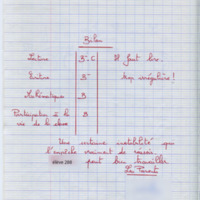 Bilan
Lecture B-C Il faut lire.
Ecriture B- trop irrégulière !
Mathématiques B
Participation à la B
vie de la classe
Une certaine instabilité qui
l'empêche vraiment de
peut bien travailler.